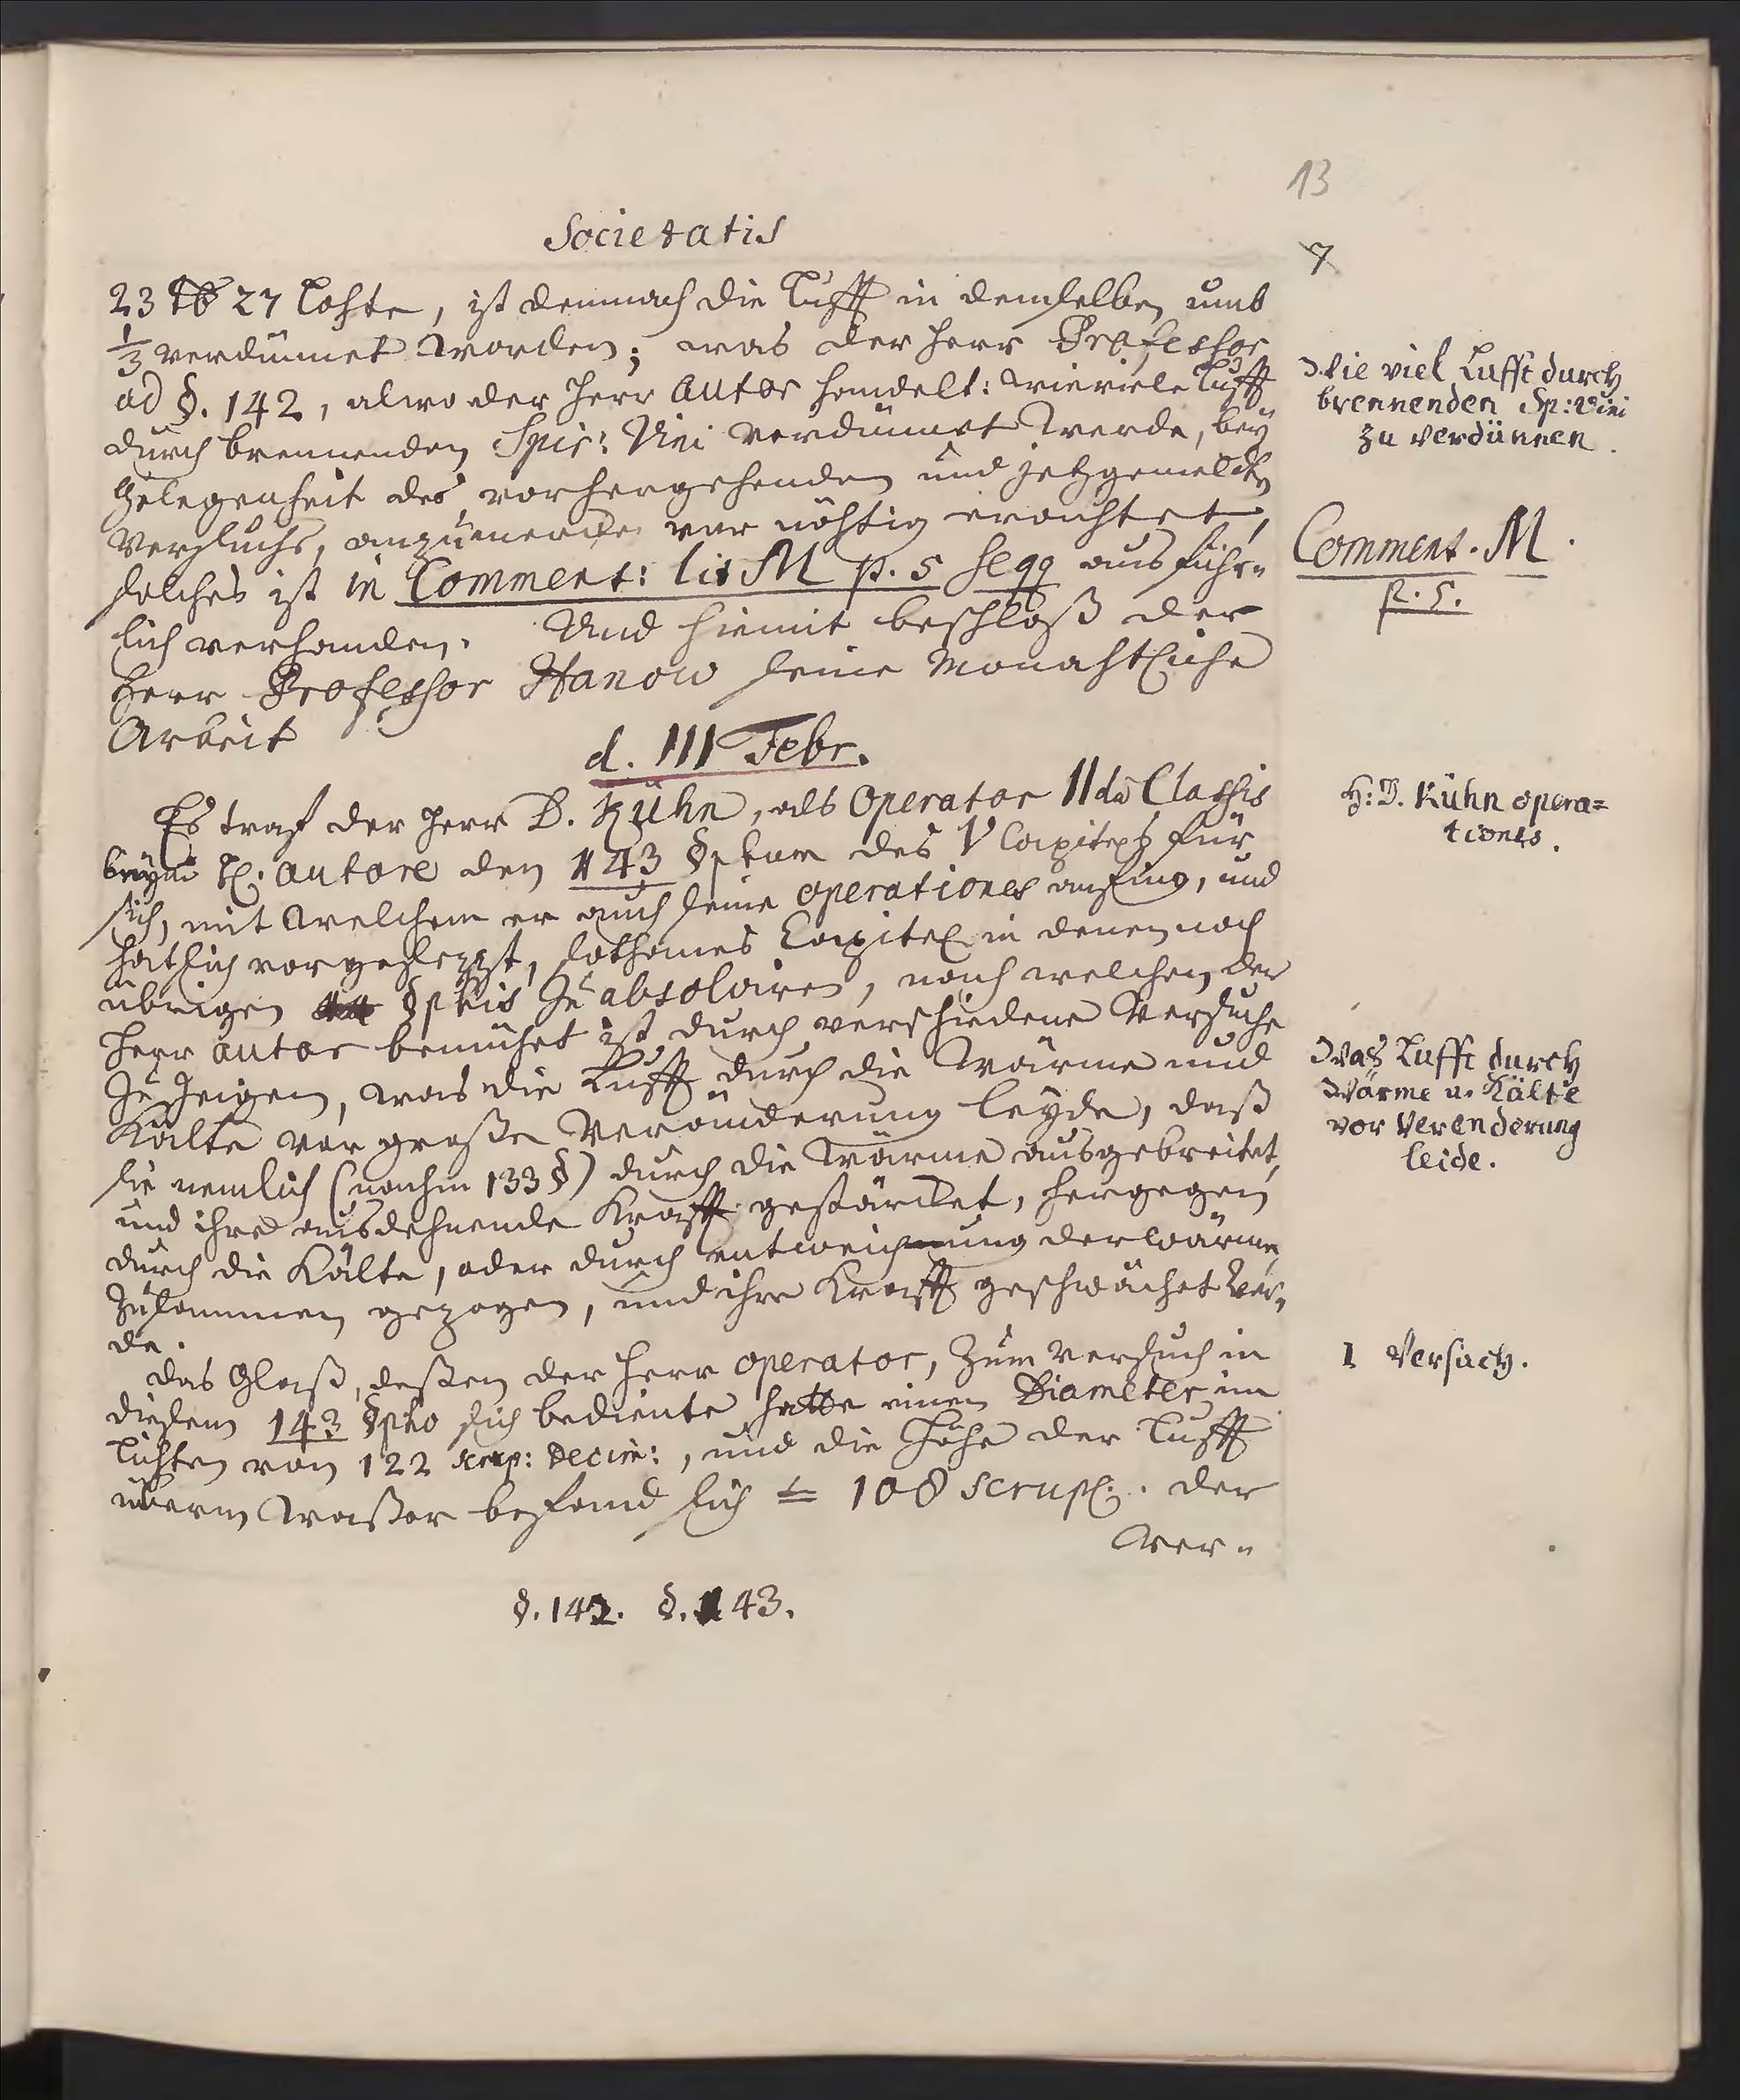 13
Societatis
7
23 ℔ 27 Lohte, ist demnach die Lufft in demselben umb
1/3 verdünnet worden; was der Herr Professor
ad §. 142, alwo der Herr Autor handelt: wie viele Lufft
durch brennenden Spir: Vini verdünnet werde, bey
Gelegenheit des vorhergehenden und jetzgemeldten
Versuchs, anzumercken vor nöhtig erachtet,
solches ist in Comment: lit M p. 5 seqq ausführ=
lich verhanden. Und hiemit beschloß der
Herr Professor Hanow seine Monahtliche
Arbeit
Wie viel Lufft durch
brennenden Sp: Vini
zu verdünnen.
Comment. M.
p. 5.
d. III Febr.
Es traf der Herr D. Kühn, als Operator IIdæ Classis
beym H. autore den 143 §phum des V Capitels für
sich, mit welchem er auch seine operationes anfing, und
hat sich vorgesezzt, sothanes Capitel in denen noch
übrigen §phis zu absolviren, nach welchen der
Herr autor bemühet ist durch verschiedene Versuche
zu zeigen, was die Lufft durch die Wärme und
Kälte vor große Veränderung leyde, daß
sie nemlich (nachm 133 §) durch die Wärme ausgebreitet,
und ihre ausdehnende Krafft gestärcket, hergegen
durch die Kälte, oder durch entweichung der wärme,
zusammen gezogen, und ihre Krafft geschwächet wer=
de.
H: D. Kühn opera=
tiones.
Was Lufft durch
Wärme u. Kälte
vor Verenderung
leide.
Das Glaß, deßen der Herr operator, zum Versuch in
diesem 143 §pho sich bediente hatte einen Diameter im
Lichten von 122 scrup: Decim:, und die Höhe der Lufft
überm Waßer befand sich = 108 scrupl. der
Wer=
I Versuch.
§. 142. §. 143.